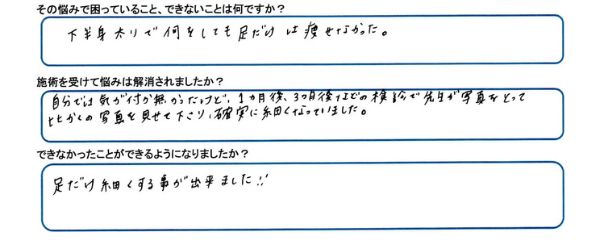 その悩みで困っていること、できないことは何ですか？
下半身太りで何をしても足だけは痩せなかった。
施術を受けて悩みは解消されましたか？
自分では気が付か無かったけど、1カ月後、3カ月後などの検診で先生が写真をとって
比かくの写真を見せて下さり、確実に細くなっていました。
できなかったことができるようになりましたか？
足だけ細くする事が出来ました!!